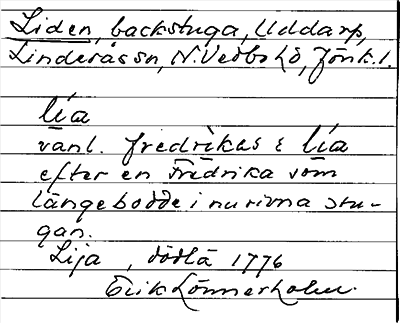 Liden, backstuga, Uddarp,
Linderås sn, N. Vedbo hd, Jönk. l.
lía
vanl. fredrìkas & lía
efter en Fredrika som
länge bodde i nu rivna stu-
gan.
Lija, dödlä 1776
Erik Lönnerholm.